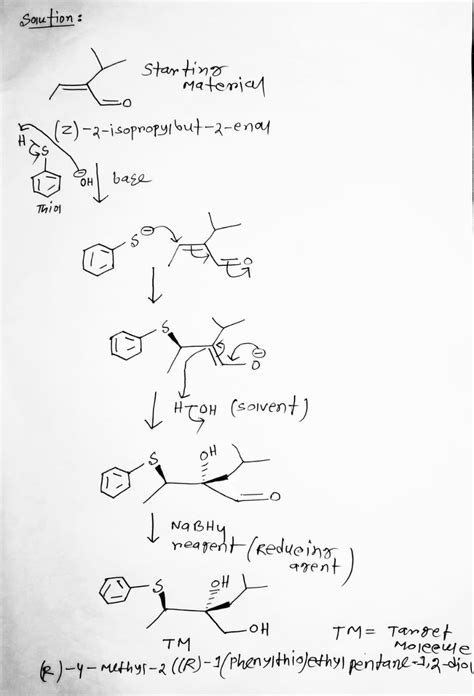 Solution:
Starting
Material
O
(Z)-2-isopropylbut-2-enal
H
S
⊖OH
base
Thiol
S⊖
O
S
O⊖
H-OH (solvent)
S
OH
O
NaBH4
reagent (Reducing
agent)
S
OH
OH
TM
TM = Target
Molecule
(R)-4-methyl-2((R)-1(phenylthio)ethyl pentane-1,2-diol